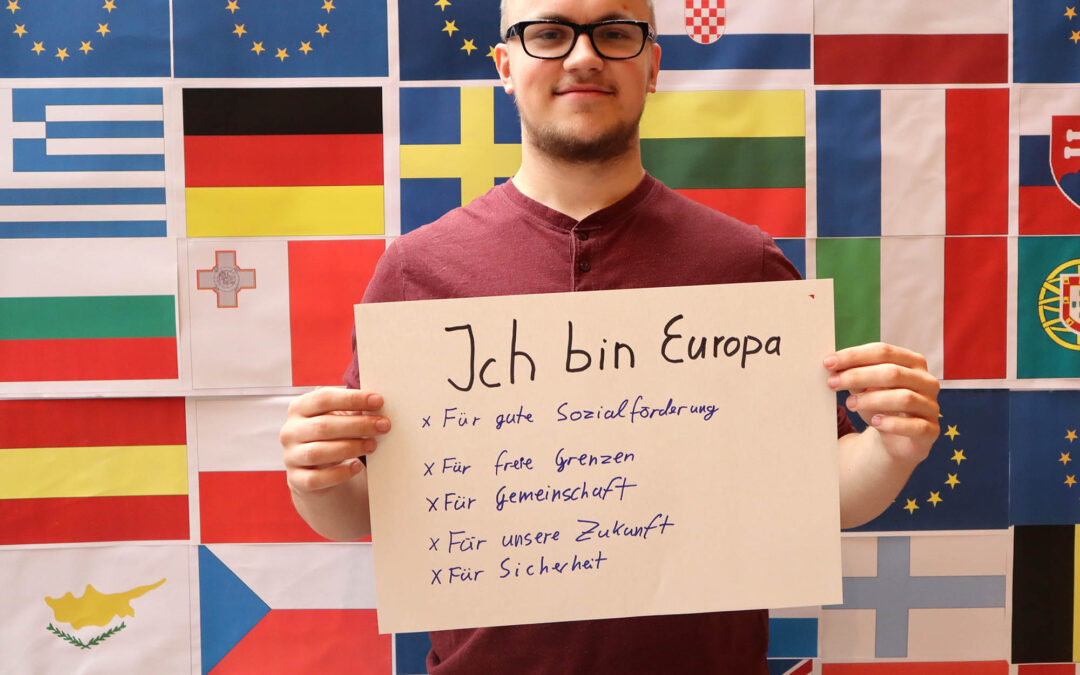 Ich bin Europa
x Für gute Sozialförderung
x Für freie Grenzen
x Für Gemeinschaft
x Für unsere Zukunft
x Für Sicherheit